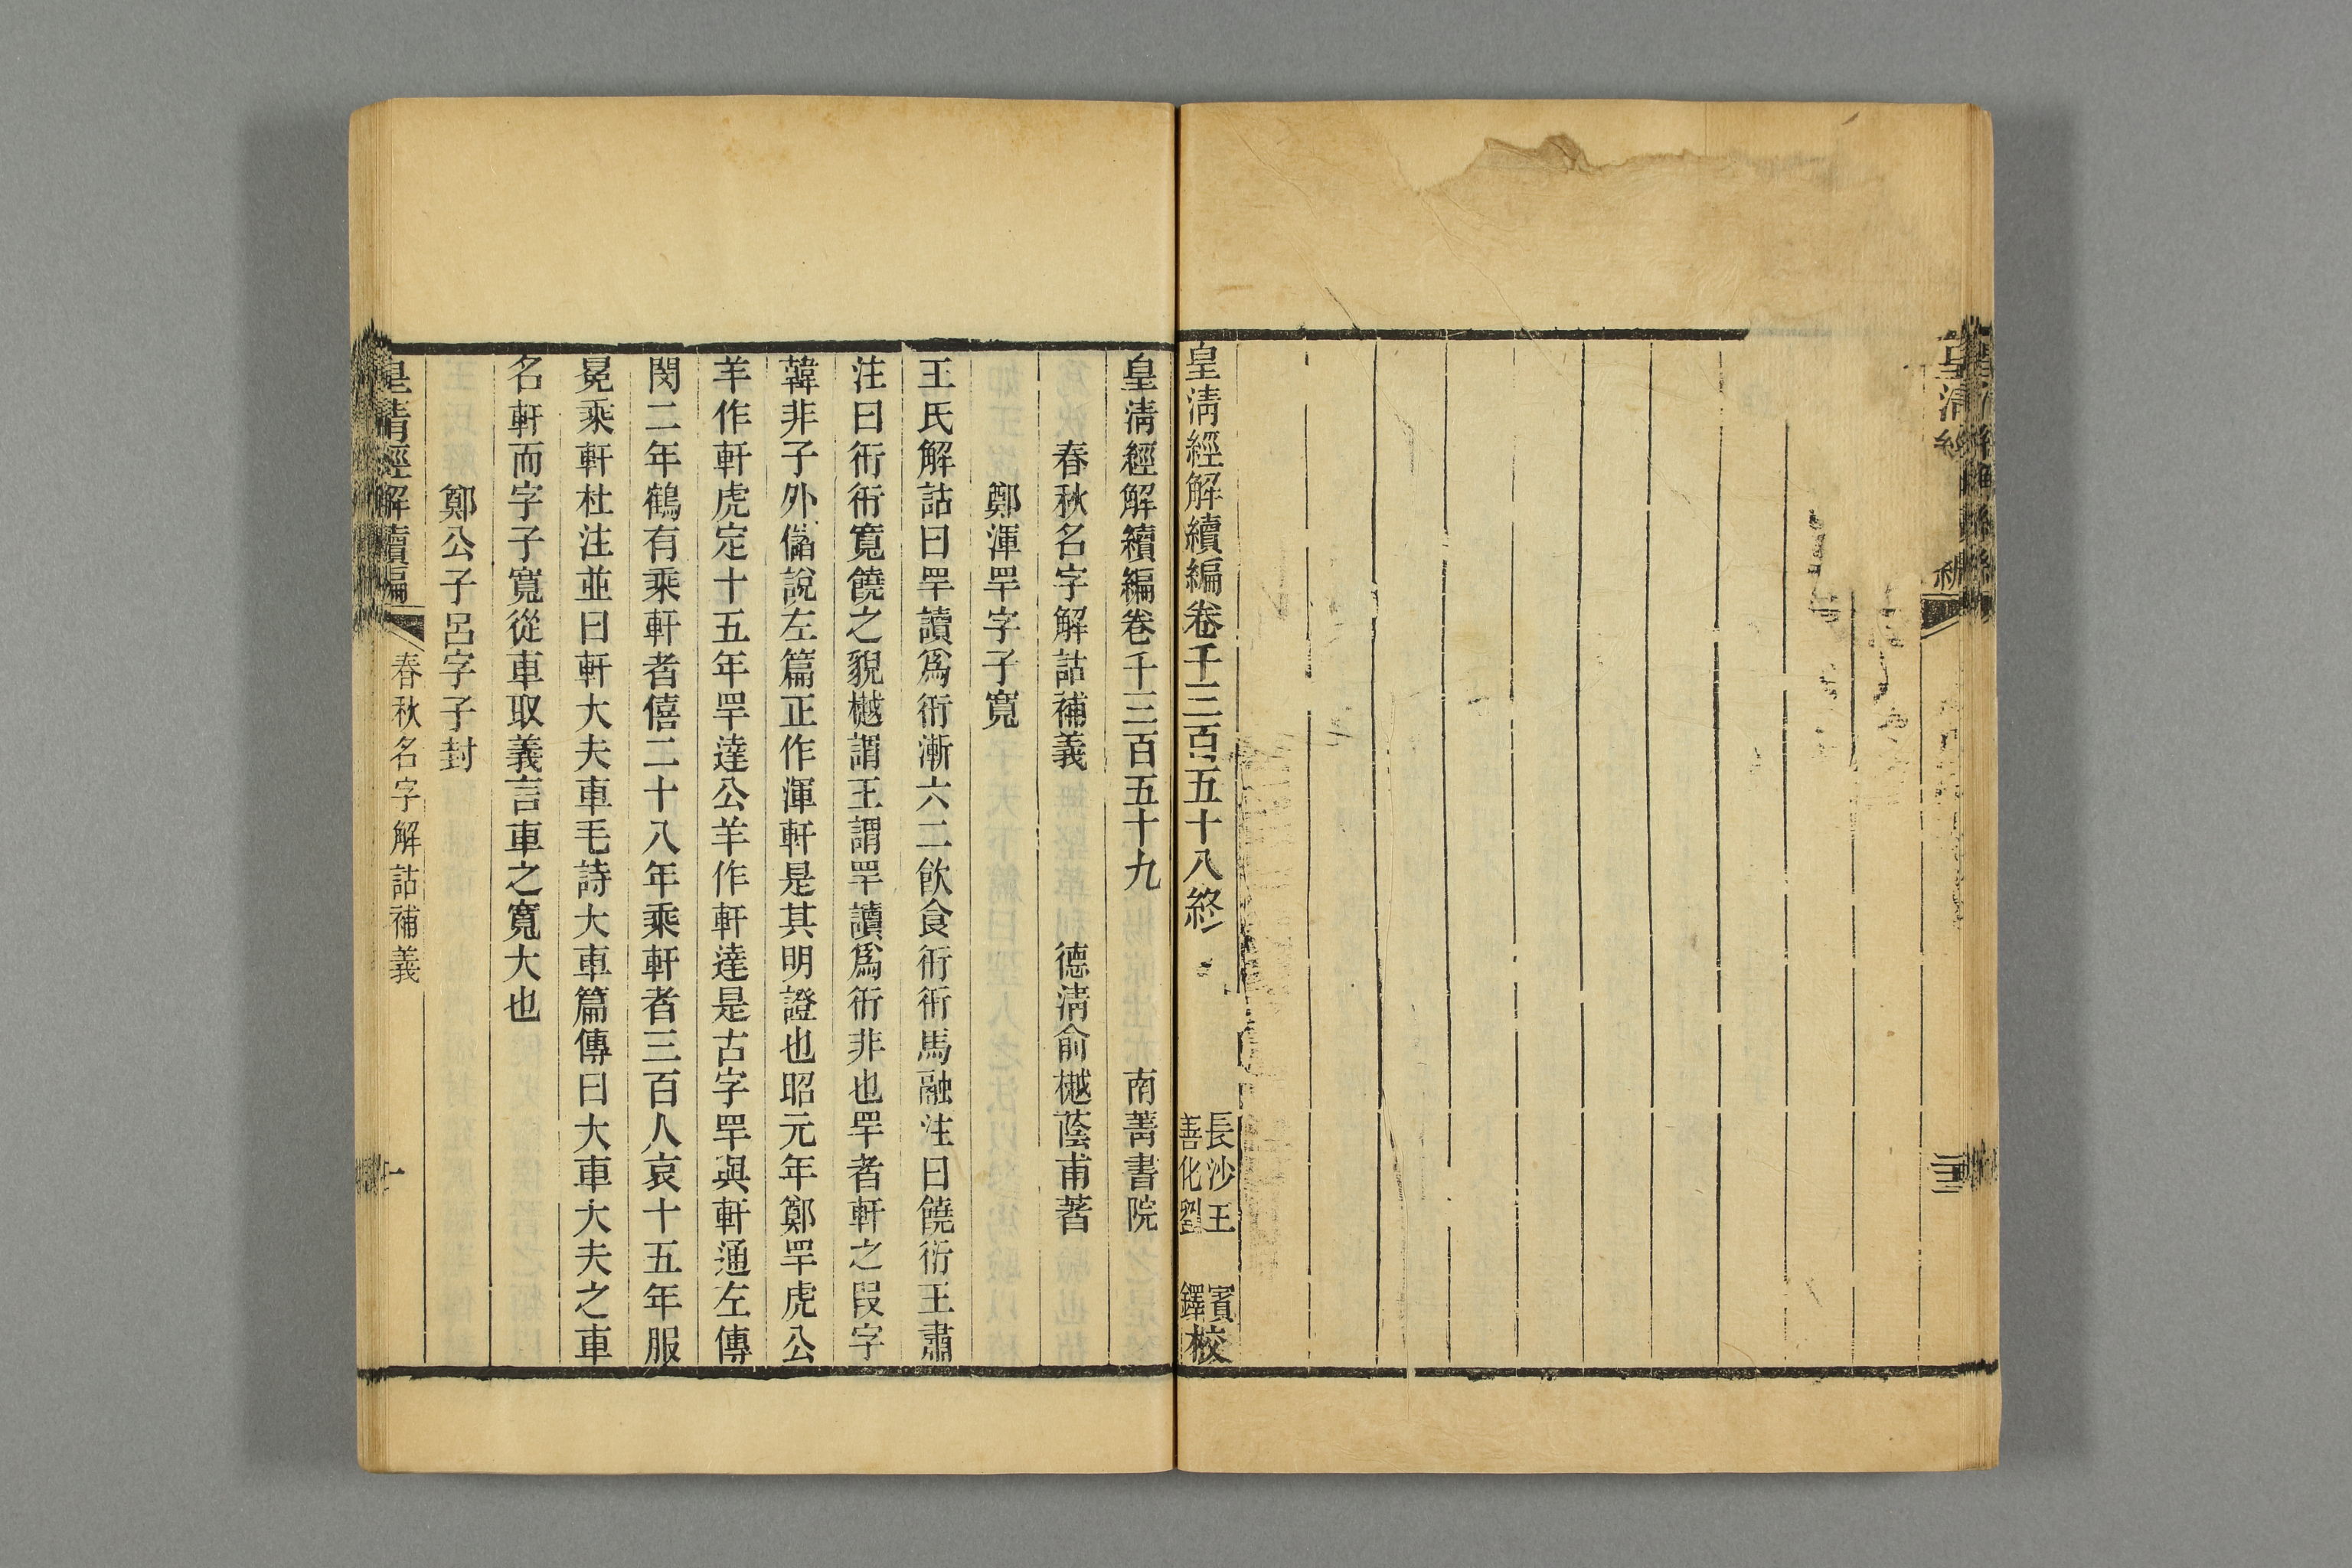 皇清經解續編卷千三百五十八終
長沙王　賓
善化劉　鐸
校
皇清經解續編卷千三百五十九　南菁書院
春秋名字解詁補義　德清俞樾蔭甫著
鄭渾罕字子寬
王氏解詁曰罕讀爲衎漸六二飮食衎衎馬融注曰饒衎王肅
注曰衎衎寬饒之貌樾謂王謂罕讀爲衎非也罕者軒之叚字
韓非子外儲說左篇正作渾軒是其明證也昭元年鄭罕虎公
羊作軒虎定十五年罕達公羊作軒達是古字罕與軒通左傳
閔二年鶴有乘軒者僖二十八年乘軒者三百人哀十五年服
冕乘軒杜注並曰軒大夫車毛詩大車篇傳曰大車大夫之車
名軒而字子寬從車取義言車之寬大也
鄭公子呂字子封
皇清經解續編
春秋名字解詁補義
一